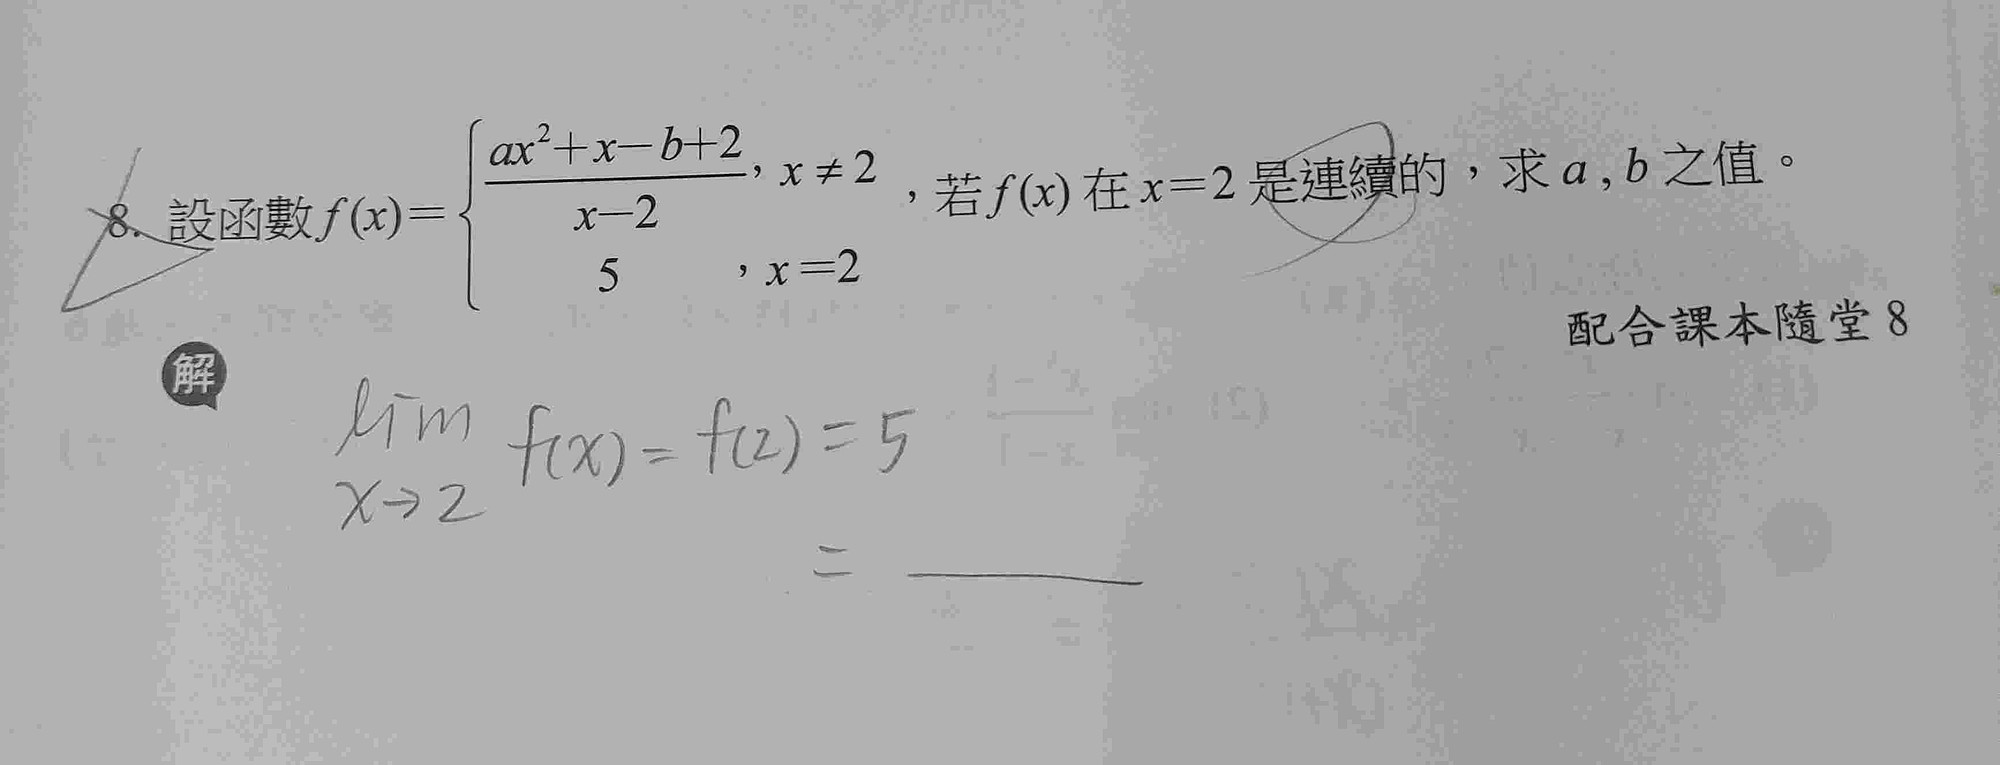 8. 設函數 f(x)= { (ax²+x−b+2)/(x−2), x≠2 ，若 f(x) 在 x=2 是連續的，求 a , b 之值。
5 ，x=2
配合課本隨堂 8
解
lim f(x) = f(2) = 5
x→2
=